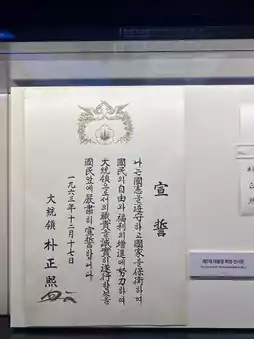 宣誓
나는 國憲을 遵守하고 國家를 保衛하며
國民의 自由와 福利의 增進에 努力하여
大統領으로서의 職責을 誠實히 遂行할것을
國民앞에 嚴肅히 宣誓합니다
一九六三年十二月十七日
大統領 朴正熙
제5대 대통령 취임 선서문